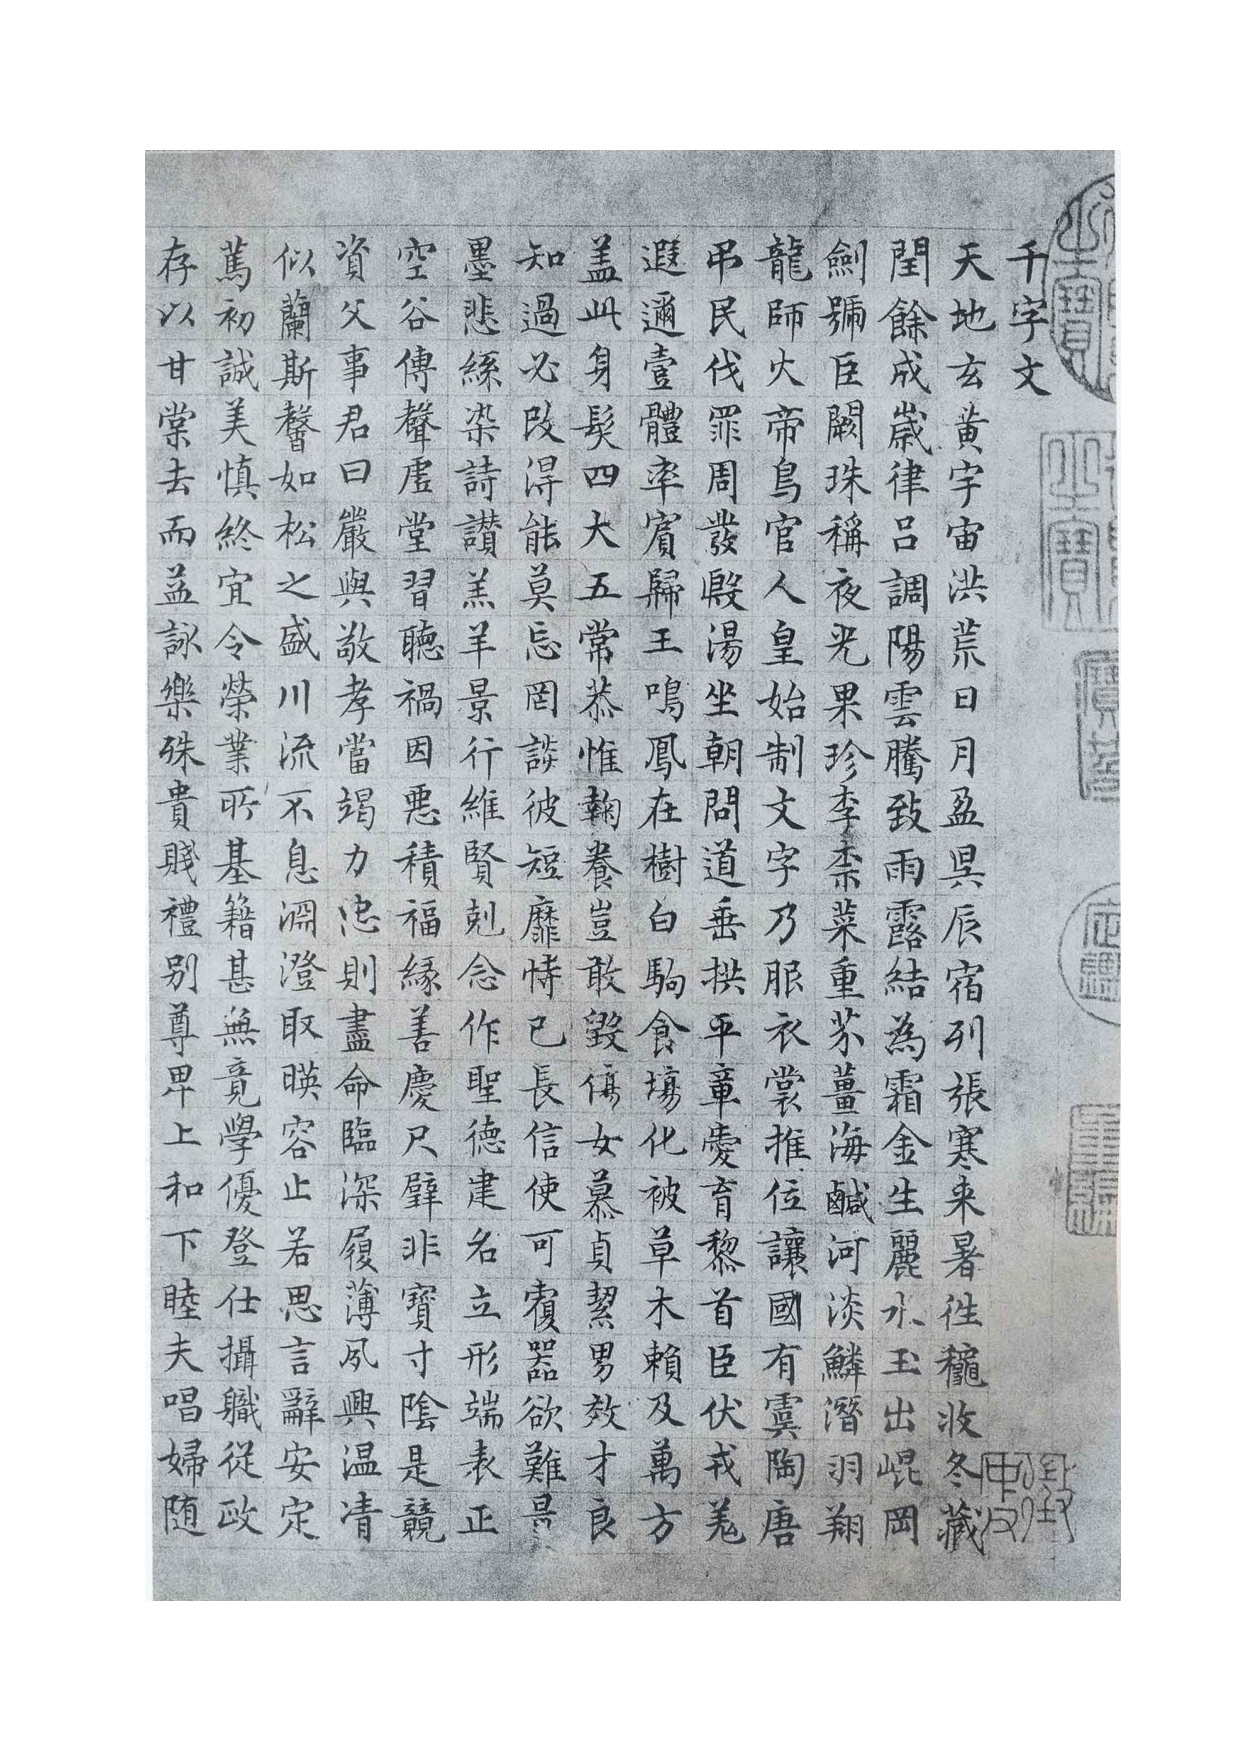 千字文
天地玄黃宇宙洪荒日月盈昃辰宿列張寒来暑往穐收冬藏
閏餘成歲律呂調陽雲騰致雨露結為霜金生麗水玉出崐岡
劍號巨闕珠稱夜光果珍李柰菜重芥薑海鹹河淡鱗潛羽翔
龍師火帝鳥官人皇始制文字乃服衣裳推位讓國有虞陶唐
吊民伐罪周發殷湯坐朝問道垂拱平章愛育黎首臣伏戎羌
遐邇壹體率賓歸王鳴鳳在樹白駒食場化被草木賴及萬方
盖此身髮四大五常恭惟鞠養豈敢毀傷女慕貞絜男效才良
知過必改得能莫忘罔談彼短靡恃己長信使可覆器欲難量
墨悲絲染詩讃羔羊景行維賢剋念作聖德建名立形端表正
空谷傳聲虛堂習聽禍因惡積福緣善慶尺璧非寶寸陰是競
資父事君曰嚴與敬孝當竭力忠則盡命臨深履薄夙興温凊
似蘭斯馨如松之盛川流不息淵澄取暎容止若思言辭安定
篤初誠美慎終宜令榮業所基籍甚無竟學優登仕攝職從政
存以甘棠去而益詠樂殊貴賤禮别尊卑上和下睦夫唱婦随